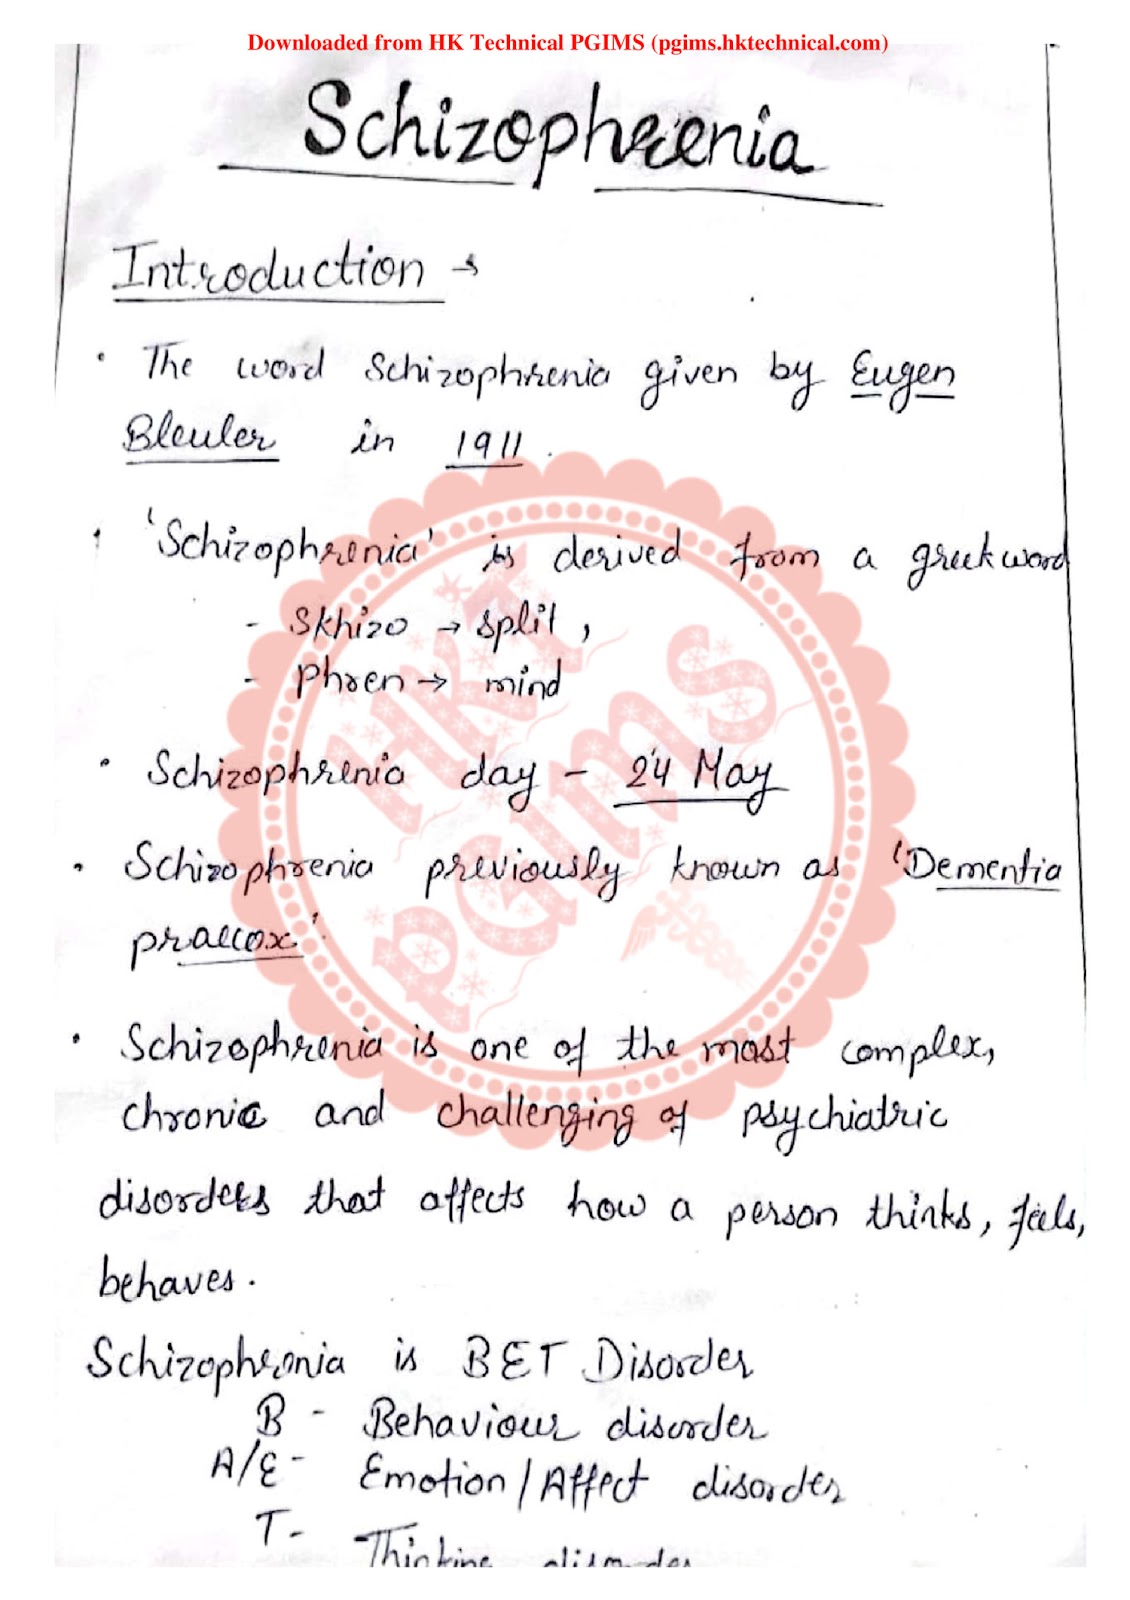 Downloaded from HK Technical PGIMS (pgims.hktechnical.com)
Schizophrenia
Introduction →
• The word Schizophrenia given by Eugen
Bleuler in 1911.
• 'Schizophrenia' is derived from a greek word
- Skhizo → split,
- Phren → mind
• Schizophrenia day - 24 May
• Schizophrenia previously known as 'Dementia
praecox'.
• Schizophrenia is one of the most complex,
chronic and challenging of psychiatric
disorders that affects how a person thinks, feels,
behaves.
Schizophrenia is BET Disorder
B - Behaviour disorder
A/E - Emotion/Affect disorder
T - Thinking disorder
HKT
PGIMS